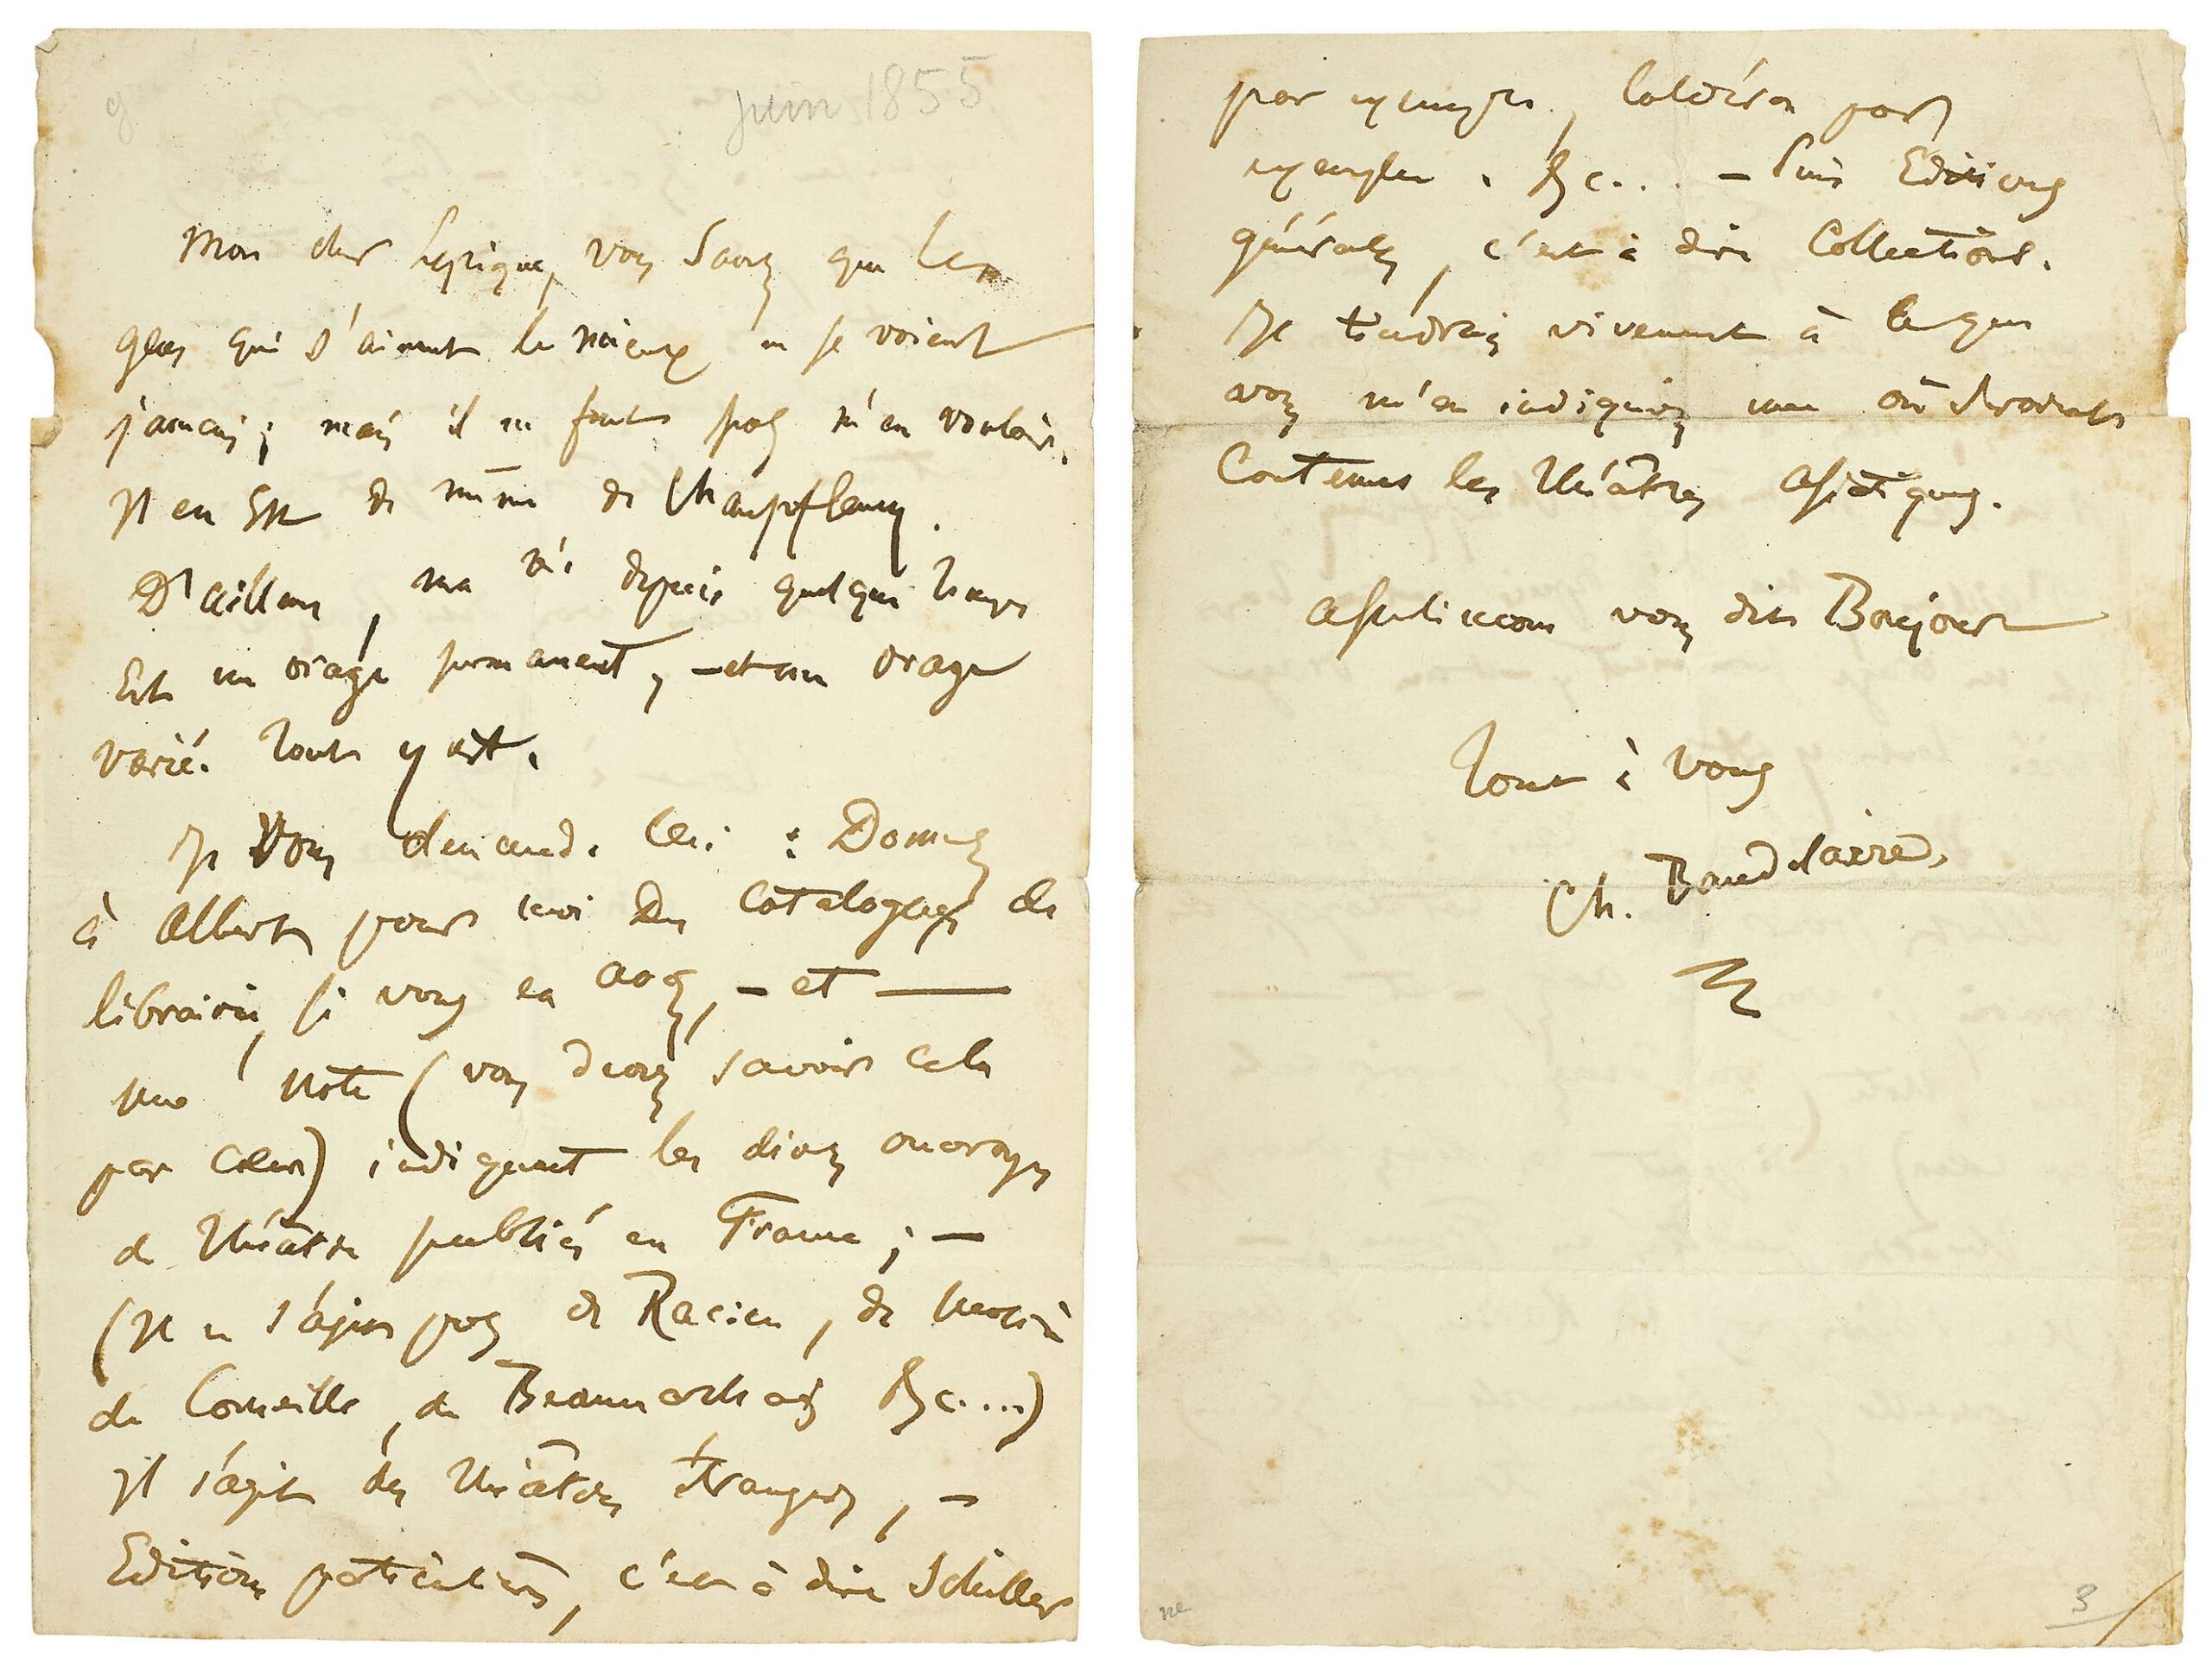 juin 1855
Mon cher Lepique, vous savez que les
gens qui s'aiment le mieux ne se voient
jamais ; mais il ne faut pas m'en vouloir.
Il en est de même de Champfleury.
D'ailleurs, ma vie depuis quelque temps
Est un orage permanent, – et un orage
varié. Tout y est.
Je vous demande ceci : Donnez
à Albert pour moi Des Catalogues de
librairie, si vous en avez, – et —
une note (vous devez savoir cela
par cœur) indiquant les divers ouvrages
de Théâtre publiés en France ; –
(Il ne s'agit pas de Racine, de
de Corneille, de Beaumarchais &c....)
Il s'agit des Théâtres étrangers, –
Editions particulières, c'est à dire Schiller
par exemple, Caldéron par
exemple, &c... – Puis Editions
générales, c'est à dire Collections.
Je tiendrais vivement à ce que
vous m'en indiquiez une où seraient
Contenus les Théâtres asiatiques.
vous dit Bonjour
Tout à vous
Ch. Baudelaire.
ne
3